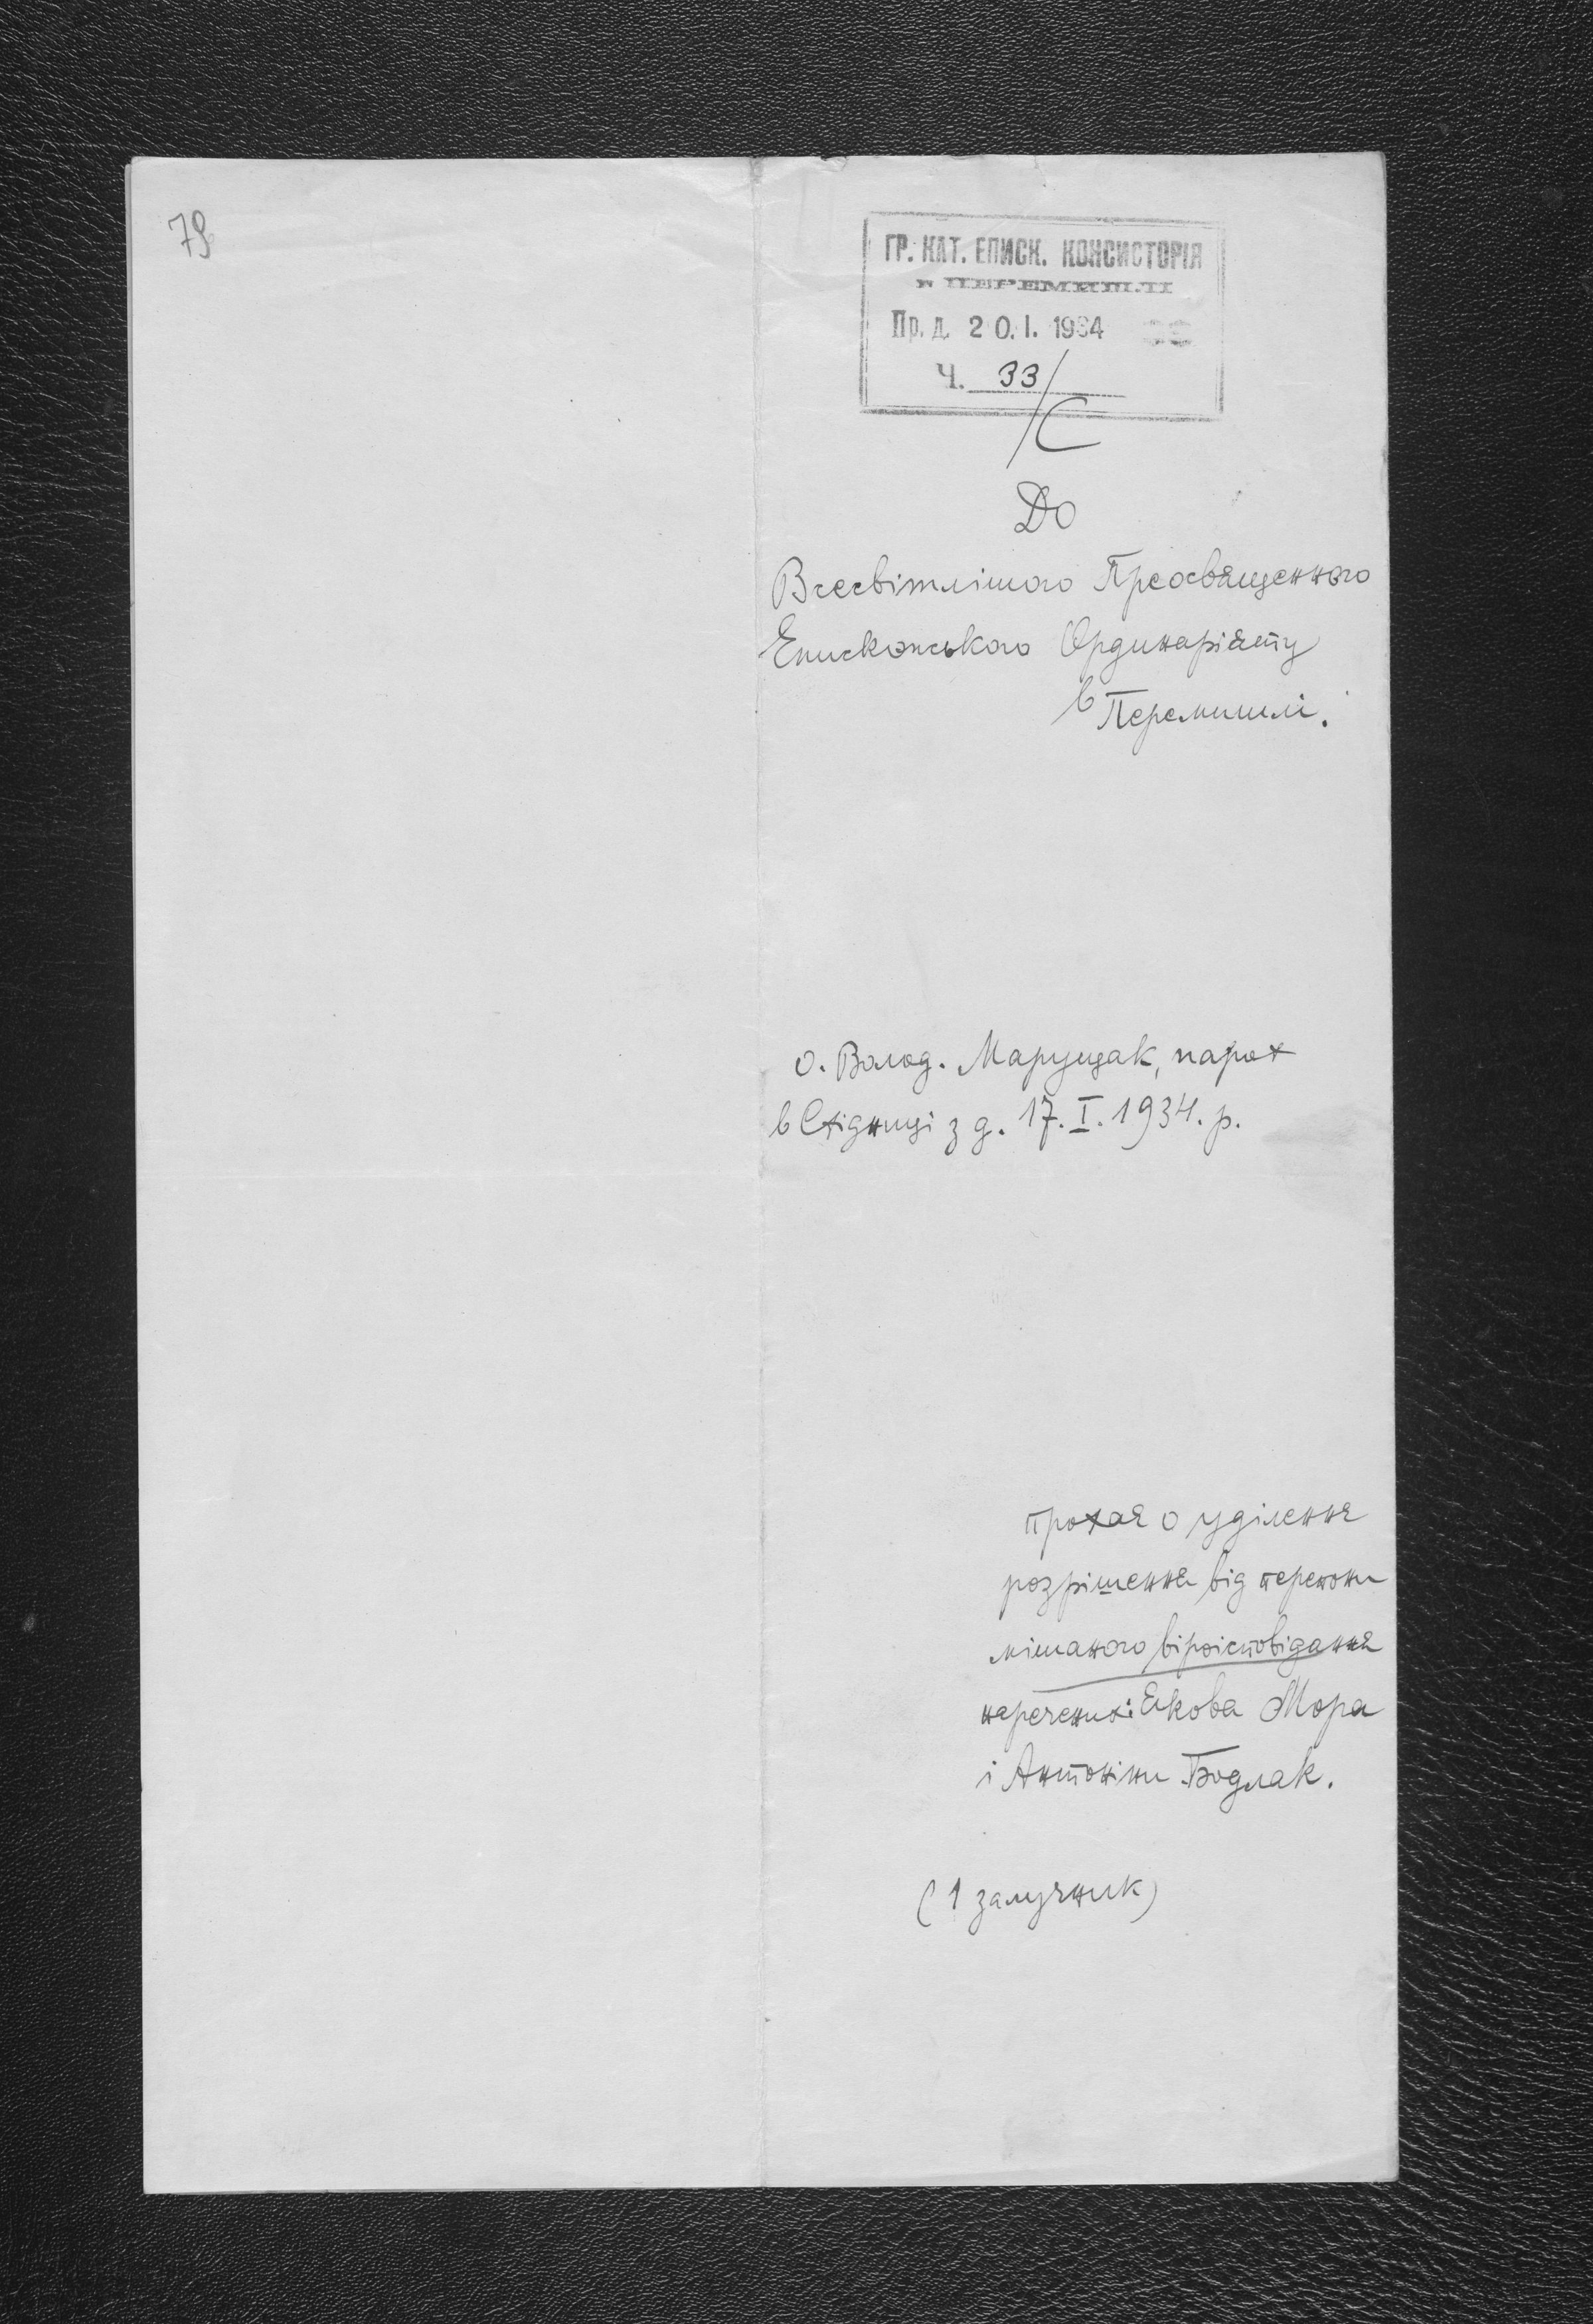 79
ГР. КАТ. ЕПИСК. КОНСИСТОРІЯ
в ПЕРЕМИШЛИ
Пр. д. 20. I. 1934
Ч. 33/С
До
Всесвітлішого Преосвященного
Епископського Ординаріяту
в Перемишлі.
о. Волод. Марущак, парох
в Стідниці з д. 17. I. 1934. р.
прохає о уділення
розрішення від перепони
мішаного віроісповідання
наречених: Якова Мора
і Антоніни Бодлак.
(1 залучник)